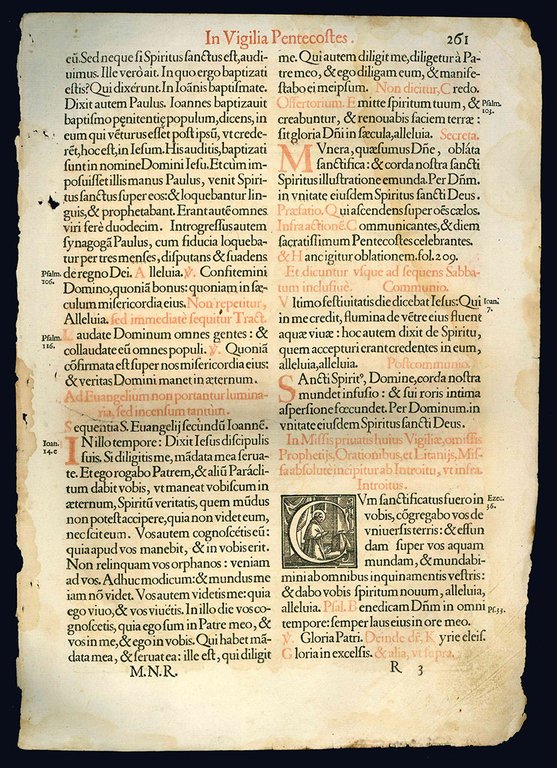 In Vigilia Pentecostes. 261
eũ. Sed neque si Spiritus sanctus est, audi-
uimus. Ille verò ait. In quo ergo baptizati
estis? Qui dixérunt. In Ioãnis baptismate.
Dixit autem Paulus. Ioannes baptizauit
baptismo pęnitentię populum, dicens, in
eum qui vẽturus esset post ipsũ, vt crede-
rẽt, hoc est, in Iesum. His auditis, baptizati
sunt in nomine Domini Iesu. Et cùm im-
posuisset illis manus Paulus, venit Spiri-
tus sanctus super eos: & loquebantur lin-
guis, & prophetabant. Erant autẽ omnes
viri ferè duodecim. Introgressus autem
synagogã Paulus, cum fiducia loqueba-
tur per tres menses, disputans & suadens
Psalm. 106.
de regno Dei. Alleluia. ℣. Confitemini
Domino, quoniã bonus: quoniam in sæ-
culum misericordia eius. Non repetitur,
Alleluia. sed immediatè sequitur Tract.
Psalm. 116.
Laudate Dominum omnes gentes: &
collaudate eũ omnes populi. ℣. Quoniã
cõfirmata est super nos misericordia eius:
& veritas Domini manet in æternum.
Ad Euangelium non portantur lumina-
ria, sed incensum tantùm.
Sequentia S. Euangelij secundũ Ioannẽ.
Ioan. 14. c
IN illo tempore: Dixit Iesus discipulis
suis. Si diligitis me, mãdata mea serua-
te. Et ego rogabo Patrem, & aliũ Parácli-
tum dabit vobis, vt maneat vobiscum in
æternum, Spiritũ veritatis, quem mũdus
non potest accipere, quia non videt eum,
nec scit eum. Vos autem cognoscétis eũ:
quia apud vos manebit, & in vobis erit.
Non relinquam vos orphanos: veniam
ad vos. Adhuc modicum: & mundus me
iam nõ videt. Vos autem videtis me: quia
ego viuo, & vos viuétis. In illo die vos co-
gnoscetis, quia ego sum in Patre meo, &
vos in me, & ego in vobis. Qui habet mã-
data mea, & seruat ea: ille est, qui diligit
M.N.R.
me. Qui autem diligit me, diligetur à Pa-
tre meo, & ego diligam eum, & manife-
stabo ei meipsum. Non dicitur, Credo.
Offertorium. Emitte spiritum tuum, &
Psalm. 103.
creabuntur, & renouabis faciem terræ:
sit gloria Dñi in sæcula, alleluia. Secreta.
MVnera, quæsumus Dñe, obláta
sanctifica: & corda nostra sancti
Spiritus illustratione emunda. Per Dñm.
in vnitate eiusdem Spiritus sancti Deus.
Præfatio. Qui ascendens super oẽs cælos.
Infra actionẽ. Communicantes, & diem
sacratissimum Pentecostes celebrantes.
& Hanc igitur oblationem. fol. 209.
Et dicuntur vsque ad sequens Sabba-
tum inclusiuè. Communio.
Vltimo festiuitatis die dicebat Iesus: Qui
Ioan. 7.
in me credit, flumina de vẽtre eius fluent
aquæ viuæ: hoc autem dixit de Spiritu,
quem accepturi erant credentes in eum,
alleluia, alleluia. Postcommunio.
SAncti Spiritꝰ, Domine, corda nostra
mundet infusio: & sui roris intima
aspersione fœcundet. Per Dominum. in
vnitate eiusdem Spiritus sancti Deus.
In Missis priuatis huius Vigiliæ, omissis
Prophetijs, Orationibus, et Litanijs, Mis-
sa absolute incipitur ab Introitu, vt infra.
Introitus.
CVm sanctificatus fuero in
Ezec. 36.
vobis, cõgregabo vos de
vniuersis terris: & effun
dam super vos aquam
mundam, & mundabi-
mini ab omnibus inquinamentis vestris:
& dabo vobis spiritum nouum, alleluia,
alleluia. Psal. Benedicam Dñm in omni
Ps. 33.
tempore: semper laus eius in ore meo.
℣. Gloria Patri. Deinde dr̃. Kyrie eleis.
Gloria in excelsis. & alia, vt supra.
R 3